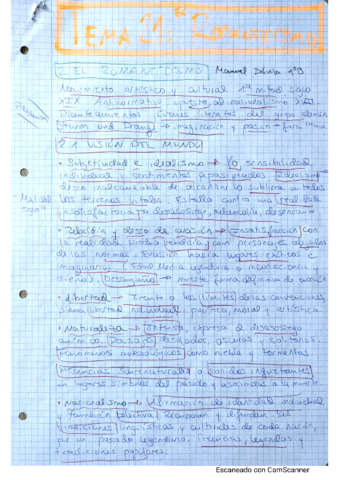 TEMA 21: Romanticismo
2. EL ROMANTICISMO Manuel nº9
Movimiento artístico y cultural 1ª mitad siglo
XIX. Antinormativo, opuesto al racionalismo XVIII.
Planteamientos literatos del grupo alemán
Sturm und Drang → imaginación y pasión
2.1 VISIÓN DEL MUNDO
• Subjetividad e idealismo → YO, sensibilidad,
individual y sentimientos apasionados. Idealismo →
deseo inalcanzable de alcanzar lo sublime en todos
Mal del siglo los terrenos vitales. Estalla contra una realidad
insatisfactoria → desasosiego, melancolía, desencanto
• Rebeldía y deseo de evasión → Insatisfacción con
la realidad produce rebeldía con personajes alejados
de las normas. Evasión hacia lugares exóticos e
imaginarios. Edad Media legendaria o
sueños. Desengaño → muerte forma definitiva de evasión
• Libertad → Frente a los límites de las convenciones,
plena libertad individual, política, moral y artística.
• Naturaleza → Intensa, expresa el desasosiego
anímico. Paisajes desolados, oscuros y solitarios.
Fenómenos meteorológicos como niebla y tormentas.
Presencias sobrenaturales o sonidos inquietantes
en lugares símbolos del pasado y asociados a la muerte.
• Nacionalismo → Afirmación de identidad individual
y también colectiva. Recuperan y defienden las
tradiciones lingüísticas y culturales de cada nación,
por un pasado legendario. Creencias, leyendas y
tradiciones populares.
Escaneado con CamScanner